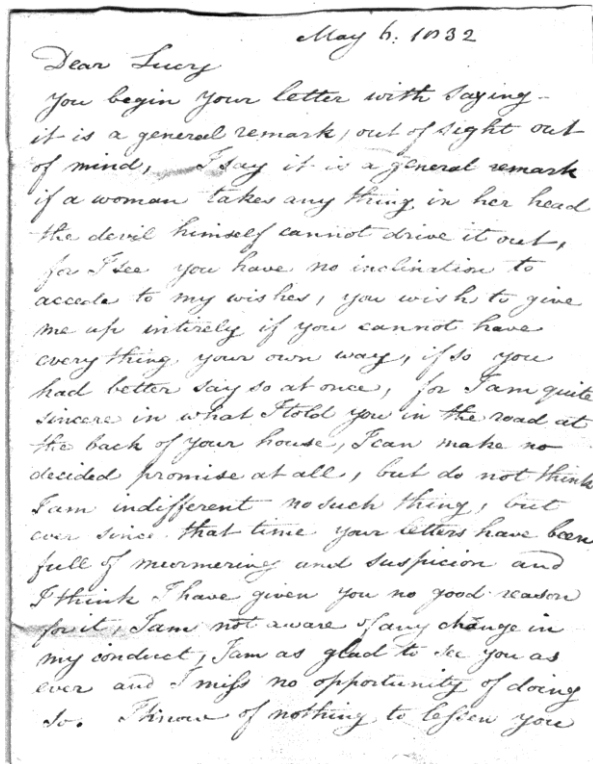 May 6. 1832
Dear Lucy
you begin your letter with saying -
it is a general remark, out of sight out
of mind, I say it is a general remark
if a woman takes any thing in her head
the devil himself cannot drive it out,
for I see you have no inclination to
accede to my wishes, you wish to give
me up intirely if you cannot have
everything your own way, if so you
had better say so at once, for I am quite
sincere in what I told you in the road at
the back of your house, I can make no
decided promise at all, but do not think
I am indifferent no such thing, but
ever since that time your letters have been
full of murmering and suspicion and
I think I have given you no good reason
for it, I am not aware of any change in
my conduct, I am as glad to see you as
ever and I miss no opportunity of doing
so. I know of nothing to lessen you